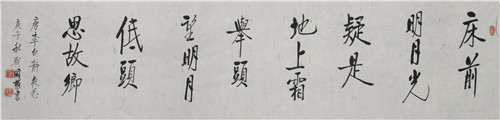 床前
明月光
疑是
地上霜
舉頭
望明月
低頭
思故鄉
唐李白靜夜思